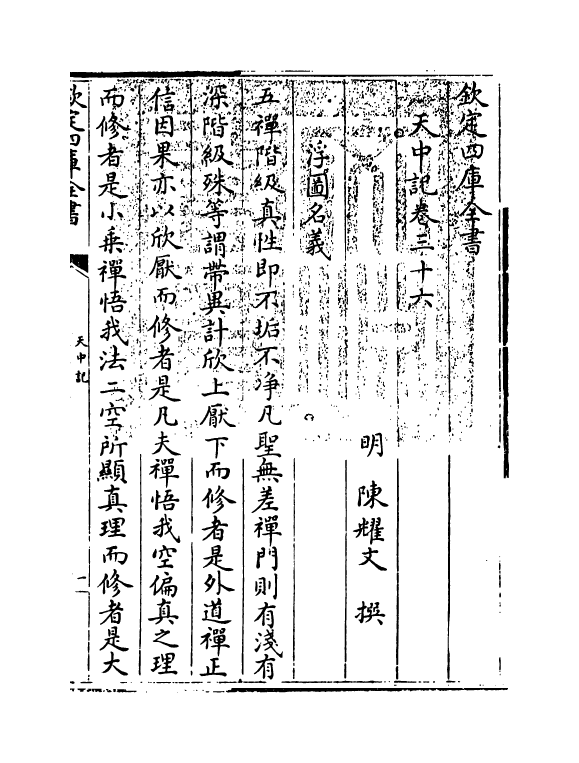 欽定四庫全書
天中記卷三十六
明 陳耀文 撰
浮圖名義
五禪階級真性即不垢不净凡聖無差禪門則有淺有
深階級殊等謂帶異計欣上厭下而修者是外道禪正
信因果亦以欣厭而修者是凡夫禪悟我空偏真之理
而修者是小乘禪悟我法二空所顯真理而修者是大
欽定四庫全書
天中記
一